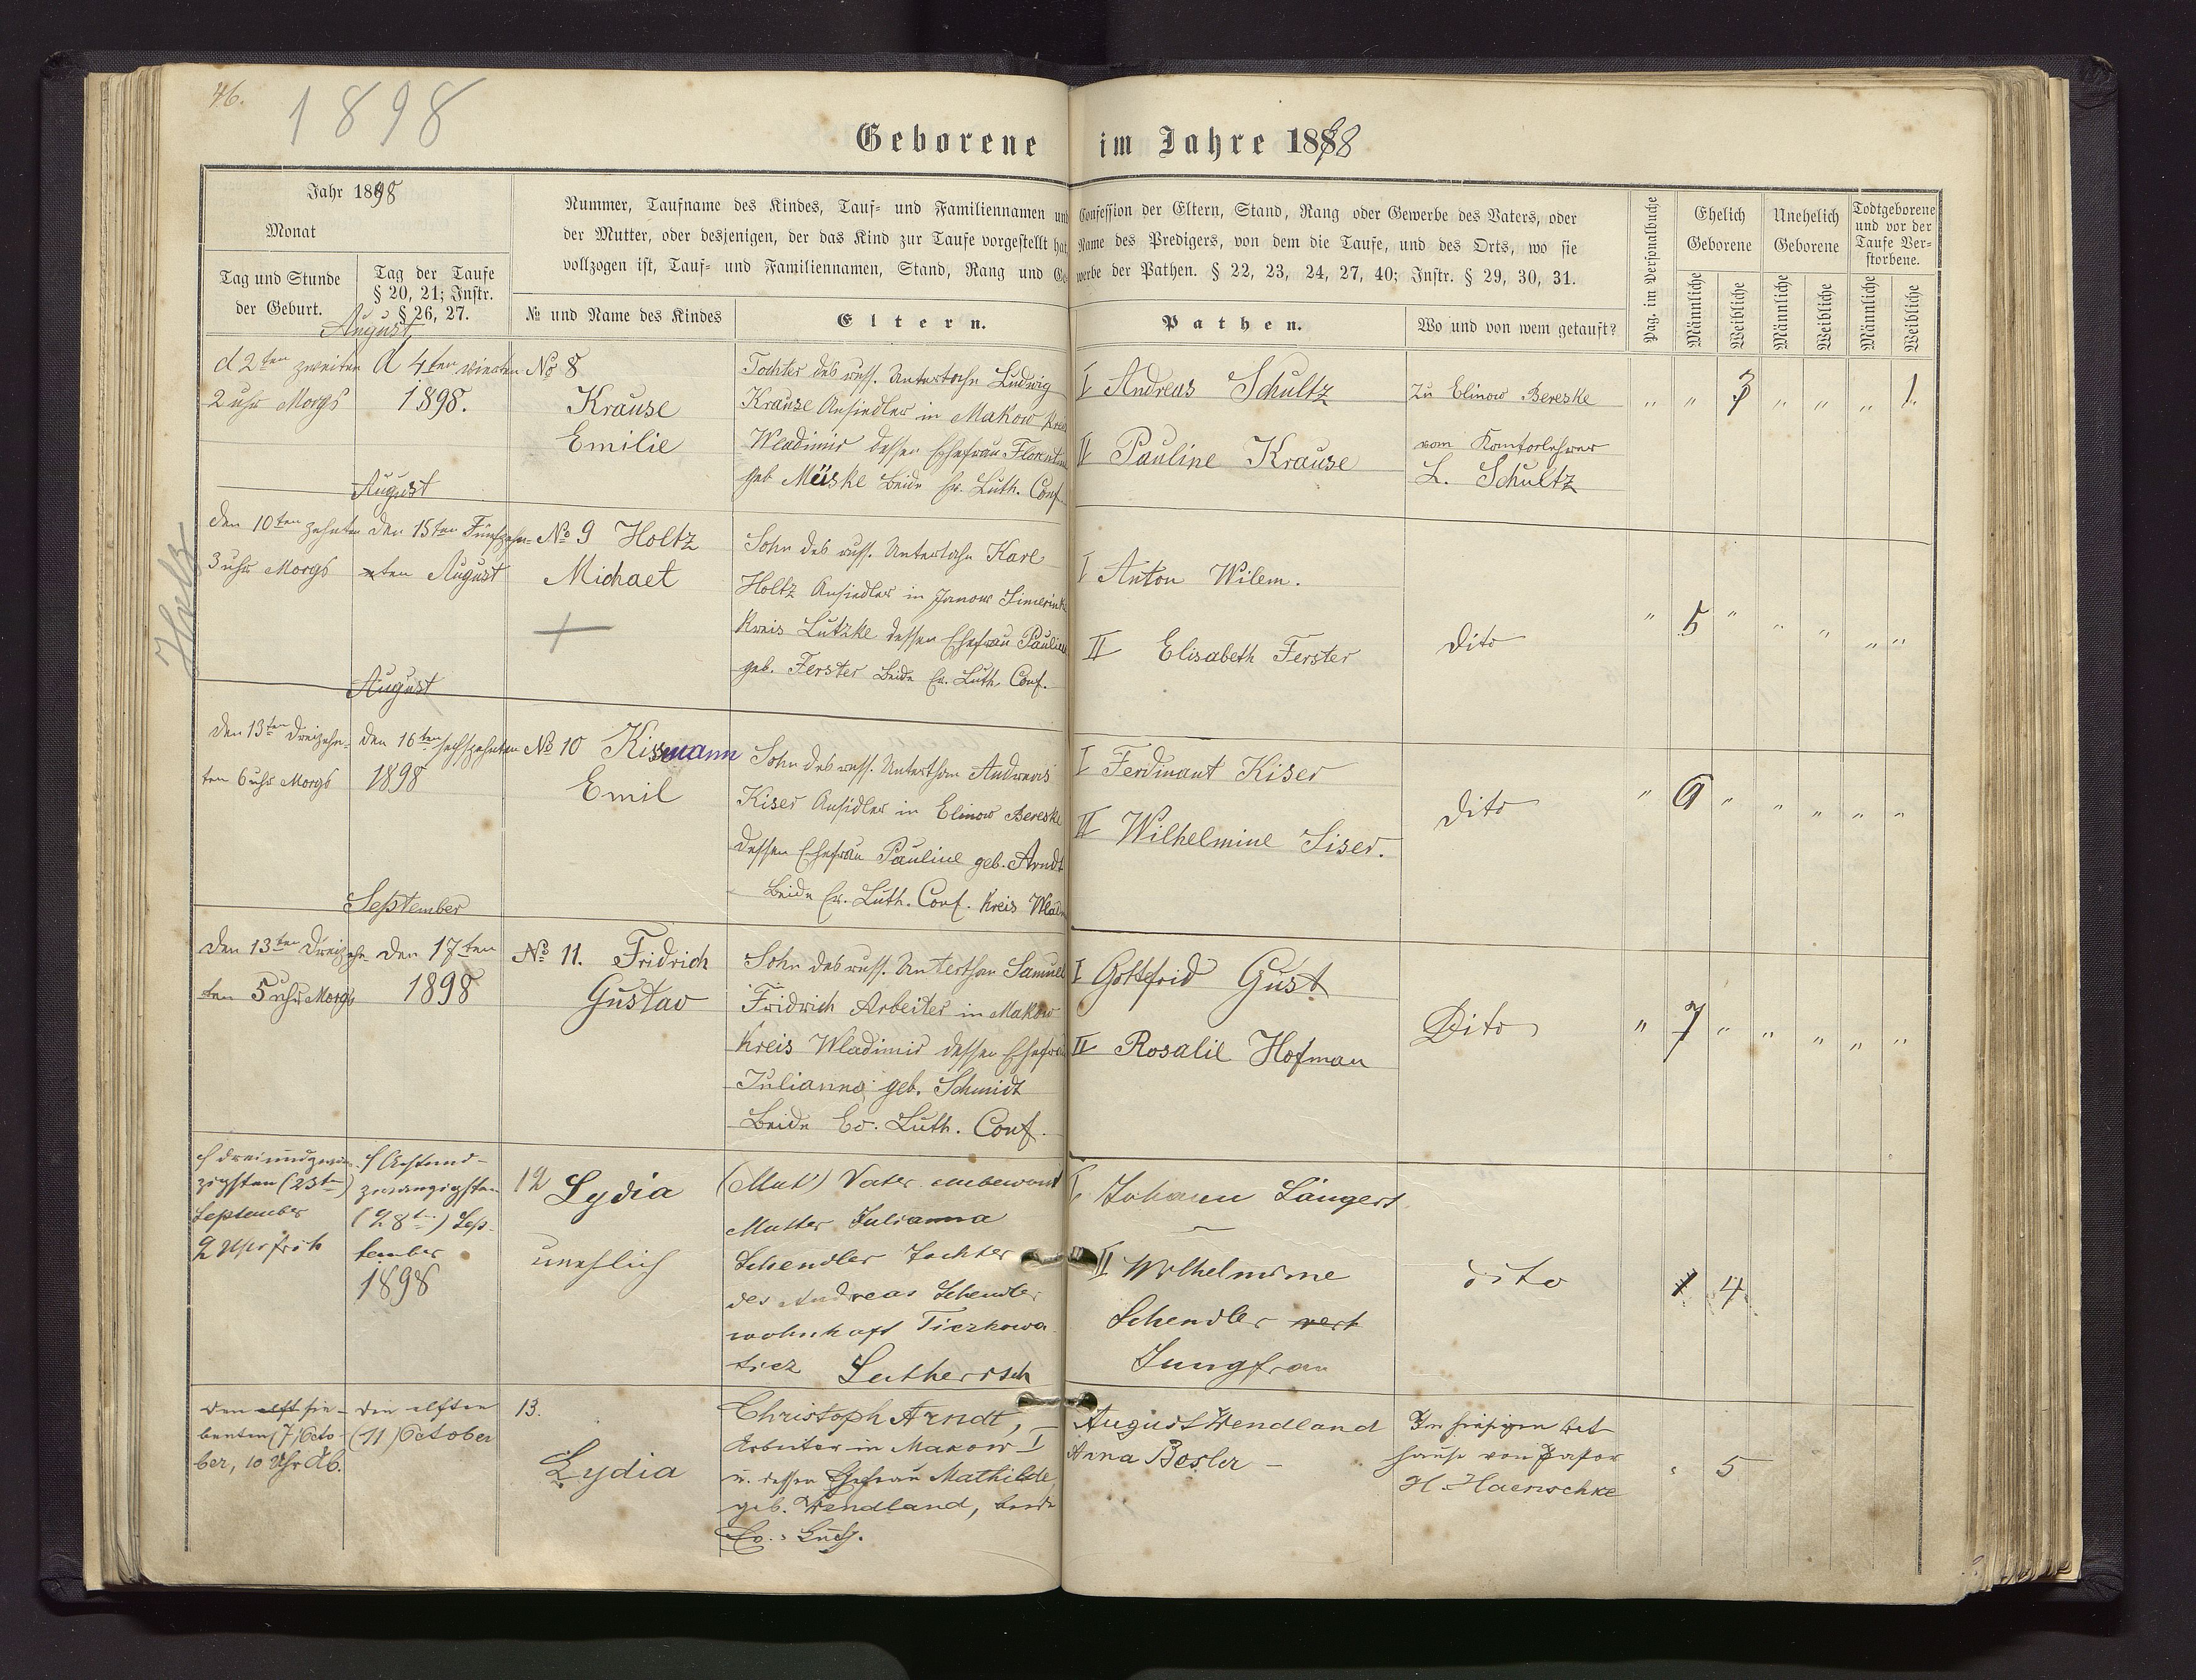 46.
1898
Geborene im Jahre 1898
Jahr 1898
Monat
Tag und Stunde
der Geburt.
Tag der Taufe
§ 20, 21; Instr.
§ 26, 27.
Nummer, Taufname des Kindes, Tauf- und Familiennamen und
der Mutter, oder desjenigen, der das Kind zur Taufe vorgestellt hat,
vollzogen ist, Tauf- und Familiennamen, Stand, Rang und Ge-
№ und Name des Kindes
Eltern.
Confession der Eltern, Stand, Rang oder Gewerbe des Vaters, oder
Name des Predigers, von dem die Taufe, und des Orts, wo sie
werbe der Pathen. § 22, 23, 24, 27, 40; Instr. § 29, 30, 31.
Pathen.
Wo und von wem getauft?
Pag. im Personalbuche
Ehelich
Geborene
Unehelich
Geborene
Todtgeborene
und vor der
Taufe Ver-
storbene.
Männliche
Weibliche
Männliche
Weibliche
Männliche
Weibliche
August
d 2ten zweiten
2 uhr Morgs
d 4ten vierten
1898.
No 8
Krause
Emilie
Tochter des russ. Unterthan Ludwig
Krause Ansiedler in Makow Kreis
Wladimir dessen Ehefrau Florentine
geb Müske beide Ev. Luth. Conf.
I Andreas Schultz
II Pauline Krause
Zu Elinow Bereske
vom Kantorlehrer
L. Schultz
" " 3 " " " 1.
Holtz
August
den 10ten zehnten
3 uhr Morgs
den 15ten Fünfzehn-
ten August
No 9 Holtz
Michael
+
Sohn des russ. Unterthan Karl
Holtz Ansiedler in Janow
Kreis Lutzke dessen Ehefrau Pauline
geb. Ferster beide Ev. Luth. Conf.
I Anton Wilem.
II Elisabeth Ferster
dito
" 5 " " " " "
August
den 13ten dreizehn-
ten 6 uhr Morgs
den 16ten sechszehnten
1898
No 10 Kissmann
Emil
Sohn des russ. Unterthan Andreas
Kiser Ansidler in Elinow Bereske
dessen Ehefrau Pauline geb. Arndt
beide Ev. Luth. Conf. Kreis Wladi
I Ferdinant Kiser
II Wilhelmine Siser.
dito
" 6 " " " " "
September
den 13ten dreizehn-
ten 5 uhr Morgs
den 17ten
1898
No 11. Fridrich
Gustav
Sohn des russ. Unterthan Samuel
Fridrich Arbeiter in Makow
Kreis Wladimir dessen Ehefrau
Julianna geb. Schmidt
beide Ev. Luth. Conf.
I Gottfrid Gust
II Rosalie Hofman
Dito
" 7 " " " " "
dreiundzwan-
zigsten (23ten)
September
2 Uhr früh
Achtund-
zwanzigsten
(28ten) Sep-
tember
1898
12 Lydia
unehlich
Vater unbewont
Mutter Julianna
Schendler Tochter
des Andreas Schendler
wohnhaft Tiezkowa
tiez Lutherisch
I Johann Längert
II Wilhelmine
Schendler
Jungfrau
dito
4
den elft sie-
benten (7) Octo-
ber, 10 Uhr Ab.
den elften
(11) October
13.
Lydia
Christoph Arndt,
Arbeiter in Makow I
u. dessen Ehefrau Mathilde
geb. Wendland, beide
Ev.-Luth.
August Wendland
Anna Besler -
Im hiesigen Bet-
hause von Pastor
H. Haenschke
5